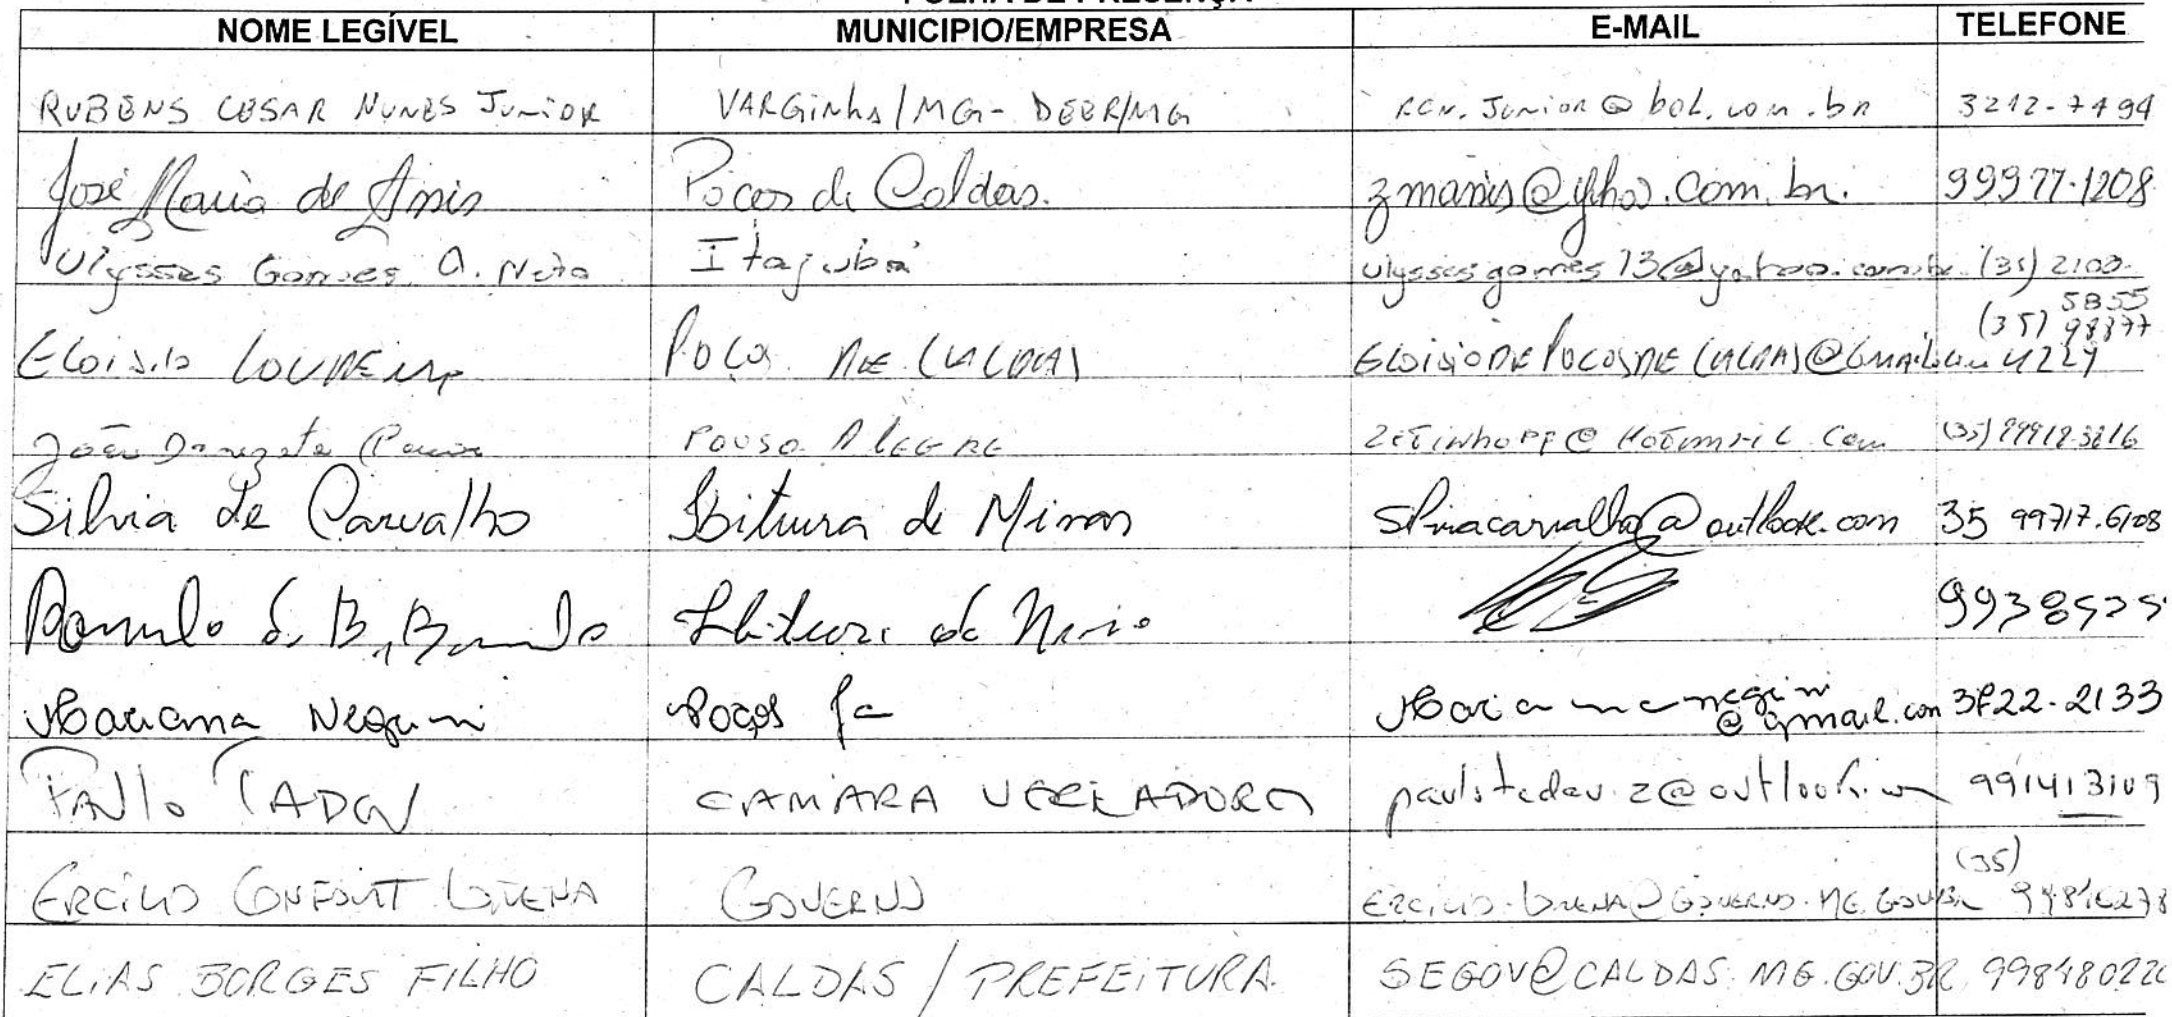 FOLHA DE PRESENÇA
NOME LEGÍVEL MUNICIPIO/EMPRESA E-MAIL TELEFONE
RUBENS CESAR NUNES JUNIOR VARGINHA/MG- DEER/MG RCN.JUNIOR@bol.com.br 3212-7494
José Maria de Assis Poços de Caldas. zmassis@yhoo.com.br. 99977-1208
Ulysses Gomes O. Neto Itajubá ulyssesgomes13@yahoo.com.br (35) 2103-
5855
(35) 98877
Eloisio LOURENÇO POÇOS DE CALDAS ELOISIODEPOCOSDECALDAS@GMAIL.COM 4229
João Donizete POUSO ALEGRE ZETINHOPF@HOTMAIL.COM (35)
Silvia de Carvalho Ibitiura de Minas @outlook.com 35 99717.6108
Romulo Ibitiura de Minas
Mariana Negrini Poços mariananegrini
@gmail.com 3722-2133
PAULO TADEU CAMARA VEREADORES paulotadeu.z@outlook.com 991413109
(35)
ERCÍLIO GOVERNO @GOVERNO.MG.GOV.BR
ELIAS BORGES FILHO CALDAS / PREFEITURA. SEGOV@CALDAS.MG.GOV.BR 99848022